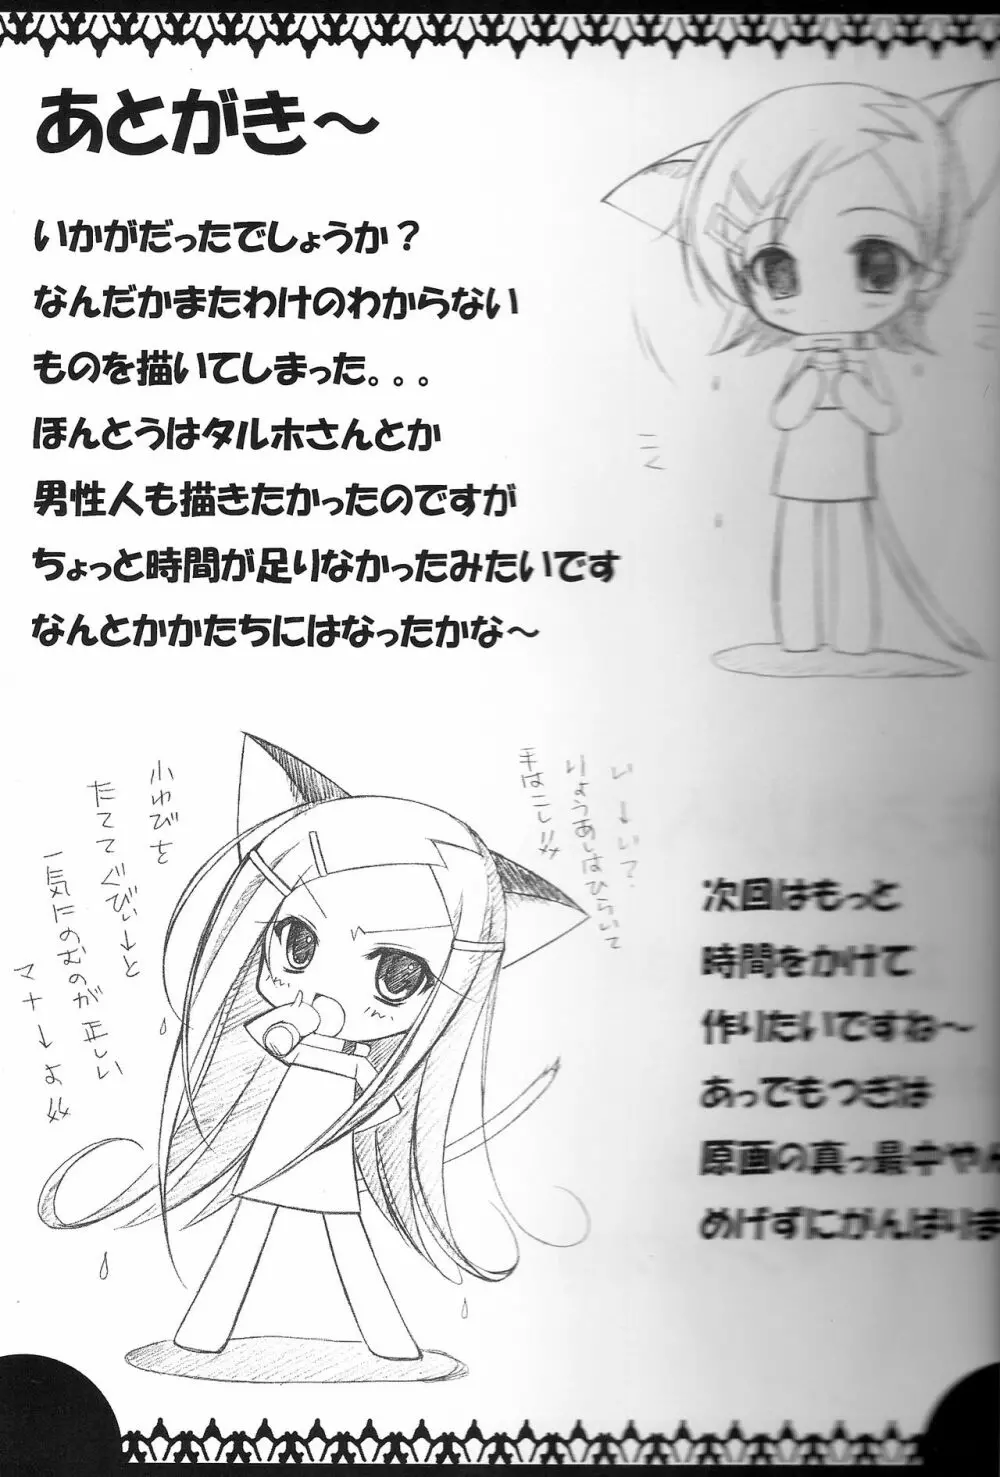 あとがき～
いかがだったでしょうか？
なんだかまたわけのわからない
ものを描いてしまった。。。
ほんとうはタルホさんとか
男性人も描きたかったのですが
ちょっと時間が足りなかったみたいです
なんとかかたちにはなったかな～
こく
い→い？
りょうあしはひらいて
手はこし!!
小わびを
たててぐびぃ→→と
一気にのむのが正しい
マナ→よ
次回はもっと
時間をかけて
作りたいですね～
あってもつぎは
原画の真っ最中やん
めげずにがんばりま